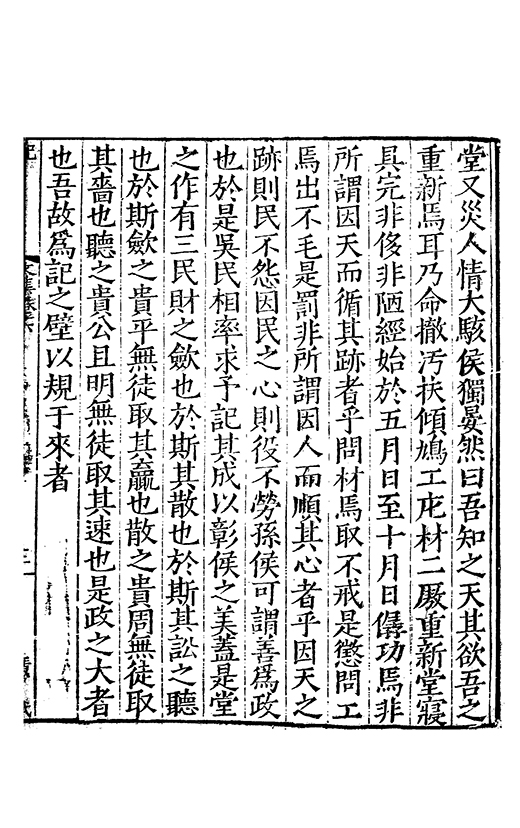 堂又災人情大駭侯獨晏然曰吾知之天其欲吾之
重新焉耳乃命撤汚扶傾鳩工庀材二厫重新堂寢
具完非侈非陋經始於五月日至十月日僝功焉非
所謂因天而循其跡者乎問材焉取不戒是懲問工
焉出不毛是罰非所謂因人而順其心者乎因天之
跡則民不怨因民之心則役不勞孫侯可謂善爲政
也於是吳民相率求予記其成以彰侯之美蓋是堂
之作有三民財之歛也於斯其散也於斯其訟之聽
也於斯歛之貴平無徒取其羸也散之貴周無徒取
其嗇也聽之貴公且明無徒取其速也是政之大者
也吾故爲記之壁以規于來者